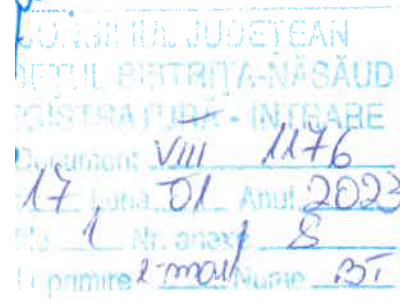 CONSILIUL JUDEŢEAN
BISTRIŢA-NĂSĂUD
REGISTRATURĂ - INTRARE
Document VIII 1176
17 Luna 01 Anul 2023
File 1 Nr. anexe 8
primire e-mail Nume BT